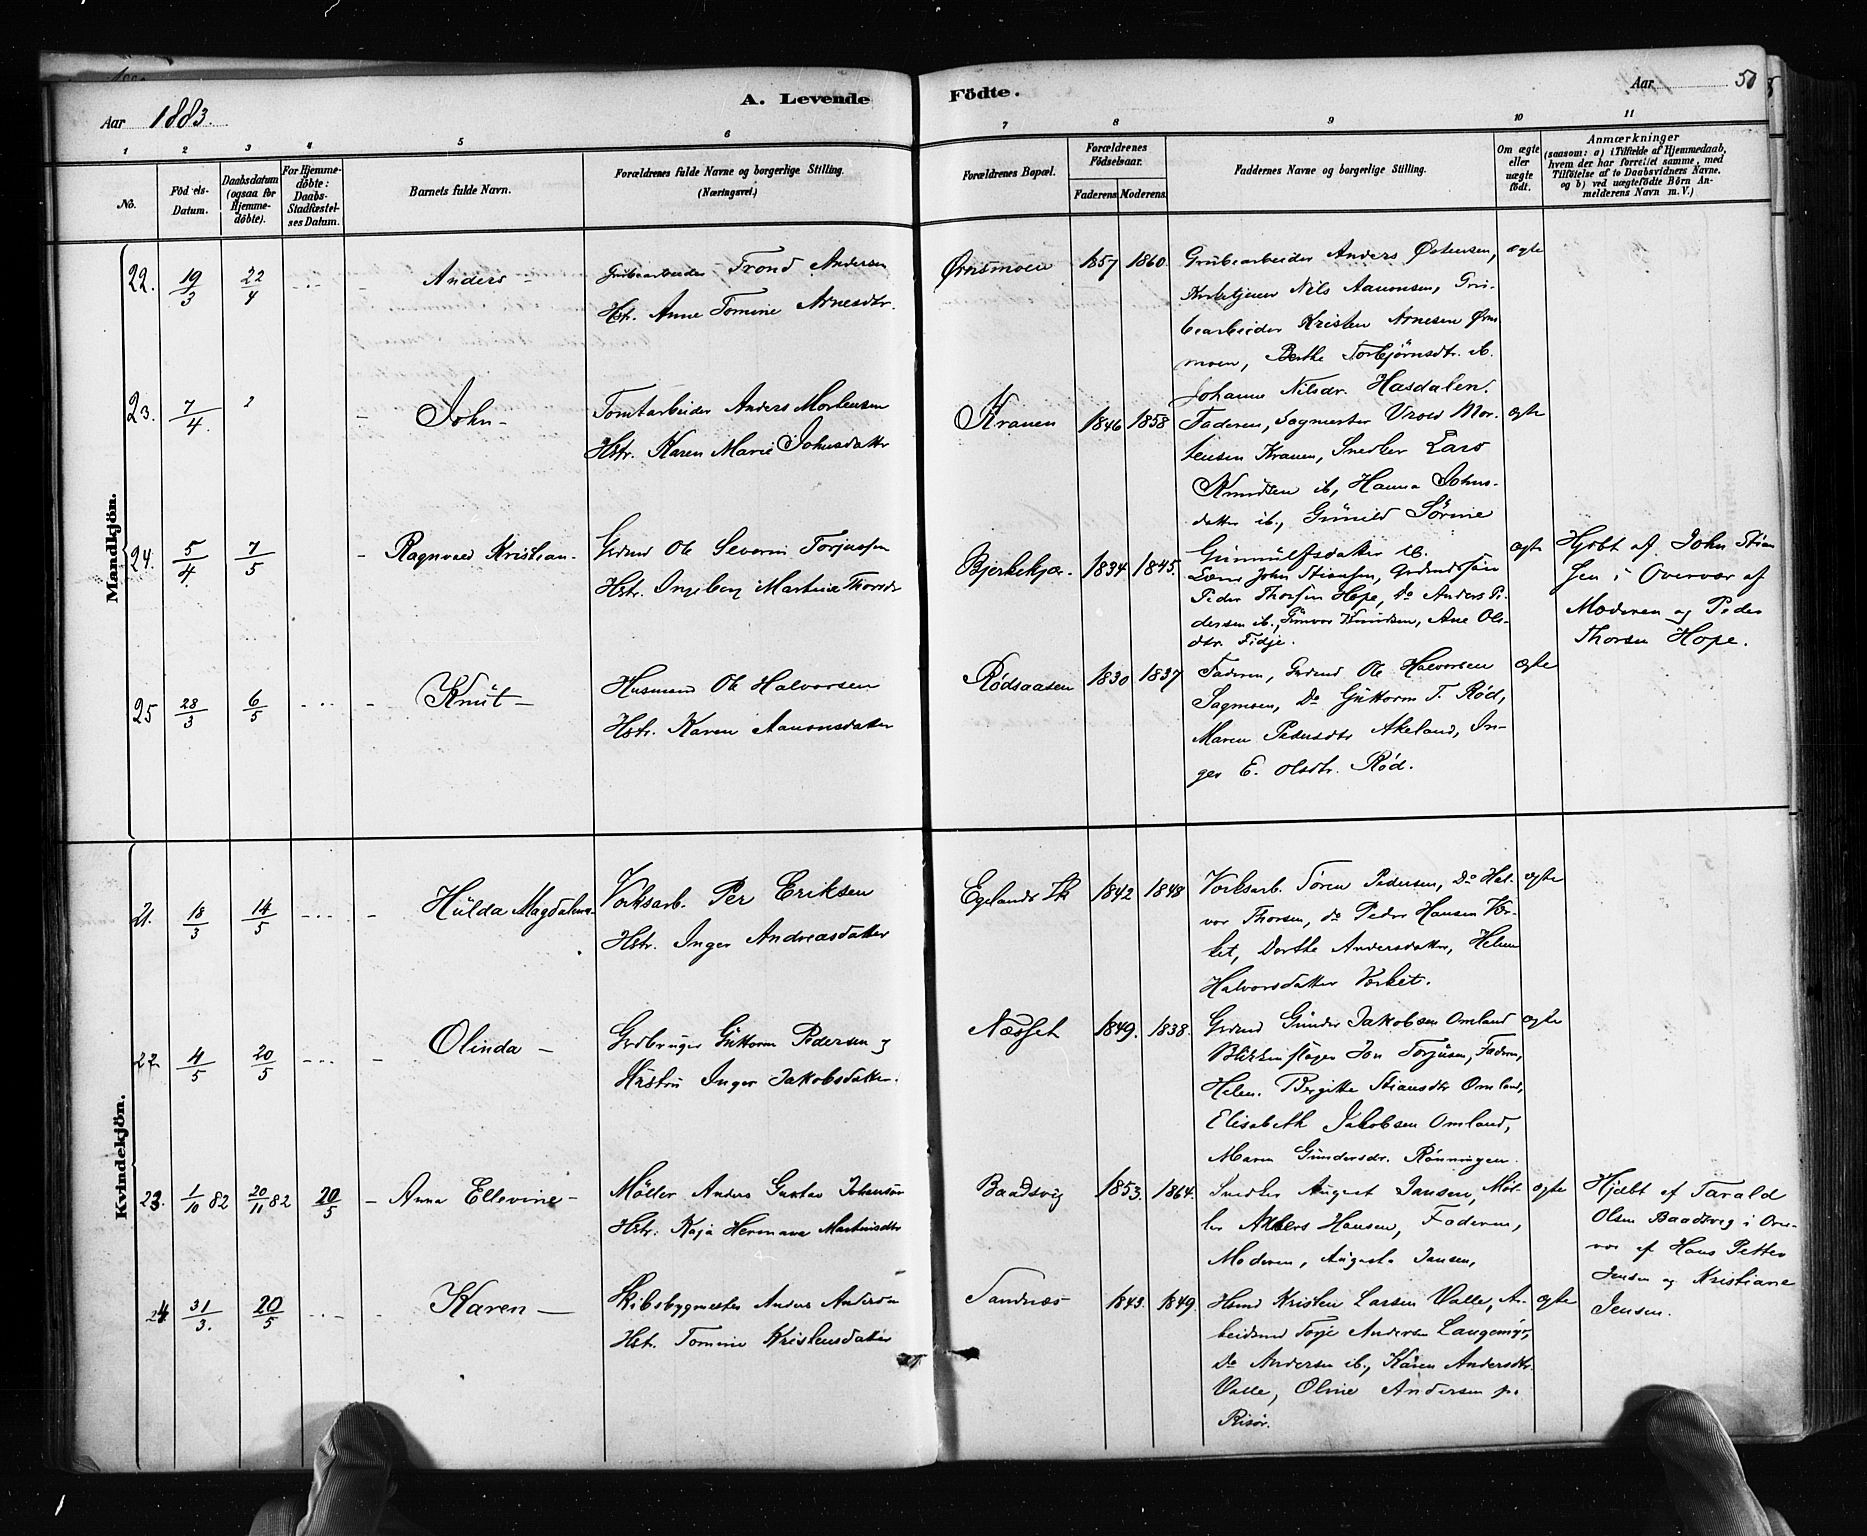 Aar 1883.
A. Levende
Födte.
Aar 50
1 2 3 4 5 6 7 8 9 10 11
No.
Födels-
Datum.
Daabsdatum
(ogsaa for
Hjemme-
döbte).
For Hjemme-
döbte:
Daabs-
Stadfæstel-
ses Datum.
Barnets fulde Navn.
Forældrenes fulde Navne og borgerlige Stilling.
(Næringsvei.)
Forældrenes Bopæl.
Forældrenes
Födselsaar.
Faderens. Moderens.
Faddernes Navne og borgerlige Stilling.
Om ægte
eller
uægte
födt.
Anmærkninger
(saasom: a) i Tilfælde af Hjemmedaab,
hvem der har forrettet samme, med
Tilföielse af to Daabsvidners Navne.
og b) ved uægtefödte Börn An-
melderens Navn m. V.)
Mandkjön.
22. 19/3 22/4 Anders -
Grubearbeider Trond Andersen
Hst. Anne Tomine Arnesdtr.
Ørnsmoen 1857 1860.
Grubearbeider Anders Østensen,
Kirketjener Nils Aanonsen, Gru-
bearbeider Kristen Arnesen Ørns
moen, Berthe Torbjørnsdtr. ib.
Johanne Nilsdr. Hasdalen.
ægte
23. 7/4. John -
Tomtarbeider Anders Mortensen
Hstr. Karen Marie Johnsdatter
Kranen 1846 1858
Faderen, Sagmester Vrold Mor-
tensen Kranen, Snedker Lars
Knudsen ib, Hanna Johns-
datter ib., Gunild Sörine
Gunnulfsdatter ib.
ægte
24. 5/4 7/5 - Ragnvald Kristian -
Grdmd Ole Severin Torjussen
Hstr. Ingeborg Martine Thorsdr
Bjerkekjær. 1834 1845.
Lærer John Stiansen, Grdmdssøn
Peder Thorsen Hope, Do Anders Pe-
dersen ib., Gunvor Knudsen, Ane Ols-
dtr. Fidje.
ægte
Hjdbt af John Stian
sen i Overvær af
Moderen og Peder
Thorsen Hope.
25 28/3 6/5 - Knut -
Husmand Ole Halvorsen
Hstr. Karen Aanonsdatter
Rødsaasen 1830 1837
Faderen, Grdmd Ole Halvorsen
Sagmoen, Do Guttorm T. Rød,
Maren Pedersdtr Akeland, In-
ger E. Olsdtr. Rød.
ægte
Kvindekjön.
21. 18/3 14/5 - Hulda Magdalene -
Verksarb. Per Eriksen
Hstr. Inger Andreasdatter
Egelands Vk 1842 1848
Verksarb. Sören Pedersen, Do Hal-
vor Thorsen, do Peder Hansen Ver-
ket, Dorthe Andersdatter, Helene
Halvorsdatter Verket.
ægte
22 4/5 20/5 - Olinda -
Grdbruger Guttorm Pedersen og
Hustru Inger Jakobsdatter.
Næsset 1849. 1838.
Grdmd Gunder Jakobsen Omland
Blikkenslager Jon Torjusen, Faderen,
Helen. Bergitte Stiansdtr Omland,
Elisabeth Jakobsen Omland,
Maren Gundersdr. Rönningen.
ægte
23. 1/10 82 20/11 82 20/5 - Anna Ellevine -
Möller Anders Gustav Johansen
Hstr. Kaja Hermana Martinsdtr
Baadsvig 1853. 1864.
Snedker August Jansen, Møl-
ler Albers Hansen, Faderen,
Moderen, Augusta Jansen,
ægte
Hjdbt af Tarald
Olsen Baadsvig i Over-
vær af Hans Petter
Jensen og Kristiane
Jensen.
24 31/3. 20/5 - Karen -
Skibsbygmester Anders Andersen
Hstr. Tomine Kristensdatter
Sandnæs 1843. 1849.
Husmd Kristen Larsen Valle, Ar-
beidsmd Terje Andersen Langemyr,
Do Andersen ib., Karen Andersdtr.
Valle, Oline Andersen pr.
Risör.
ægte